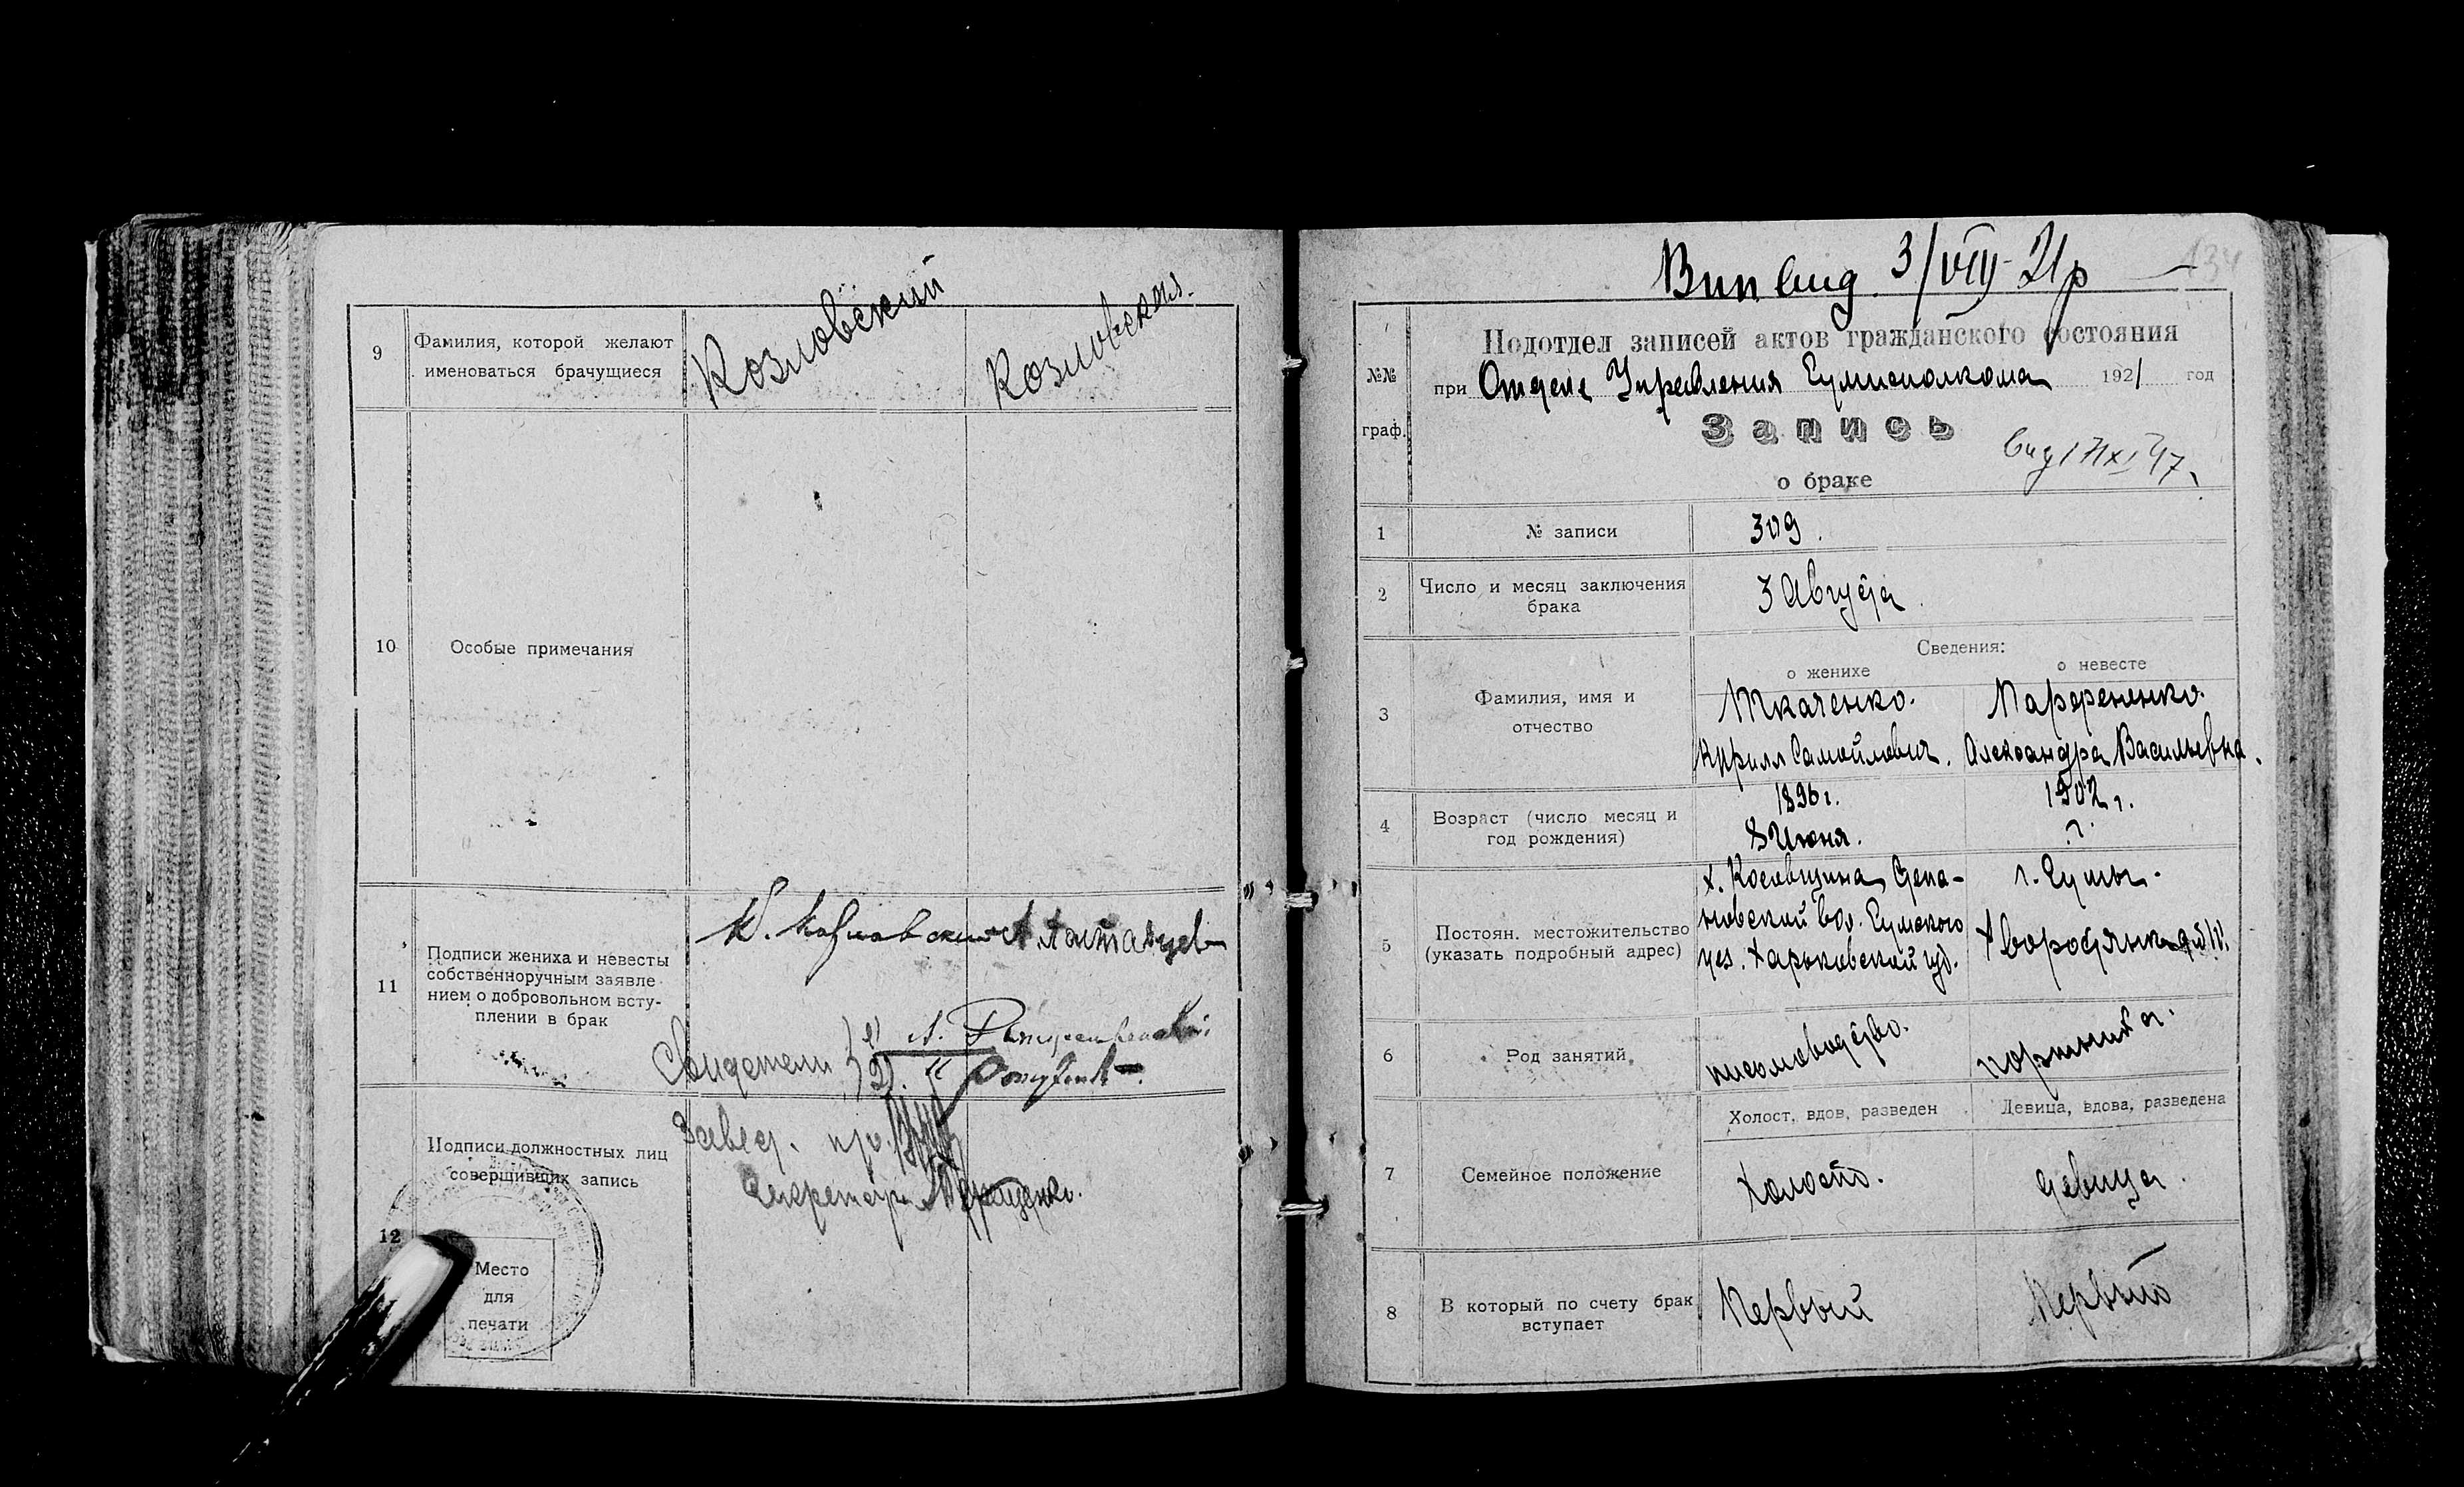 9
Фамилия, которой желают
именоваться брачущиеся
Козловский
Козловская.
10
Особые примечания
11
Подписи жениха и невесты
собственноручным заявле-
нием о добровольном всту-
плении в брак
К. Козловский
Свидетели 1)
2)
12
Подписи должностных лиц
совершивших запись
Завед.
Секретарь
Место
для
печати
3/VIII-21р
134
№№
граф.
Подотдел записей актов гражданского состояния
при Отделе Управления Сумисполкома 1921 год
Запись
о браке
1
№ записи
309.
2
Число и месяц заключения
брака
3 Августа.
Сведения:
о женихе
о невесте
3
Фамилия, имя и
отчество
Ткаченко.
Кирилл Самойлович.
Парфененко.
Александра Васильевна.
4
Возраст (число месяц и
год рождения)
1896 г.
8 Июня.
1902 г.
?
5
Постоян. местожительство
(указать подробный адрес)
х. Косовщина, Степа-
новской вол. Сумского
уез. Харьковской губ.
г. Сумы.
6
Род занятий
письмоводство.
портниха.
7
Семейное положение
Холост, вдов, разведен
Девица, вдова, разведена
Холост.
девица.
8
В который по счету брак
вступает
Первый
Первый